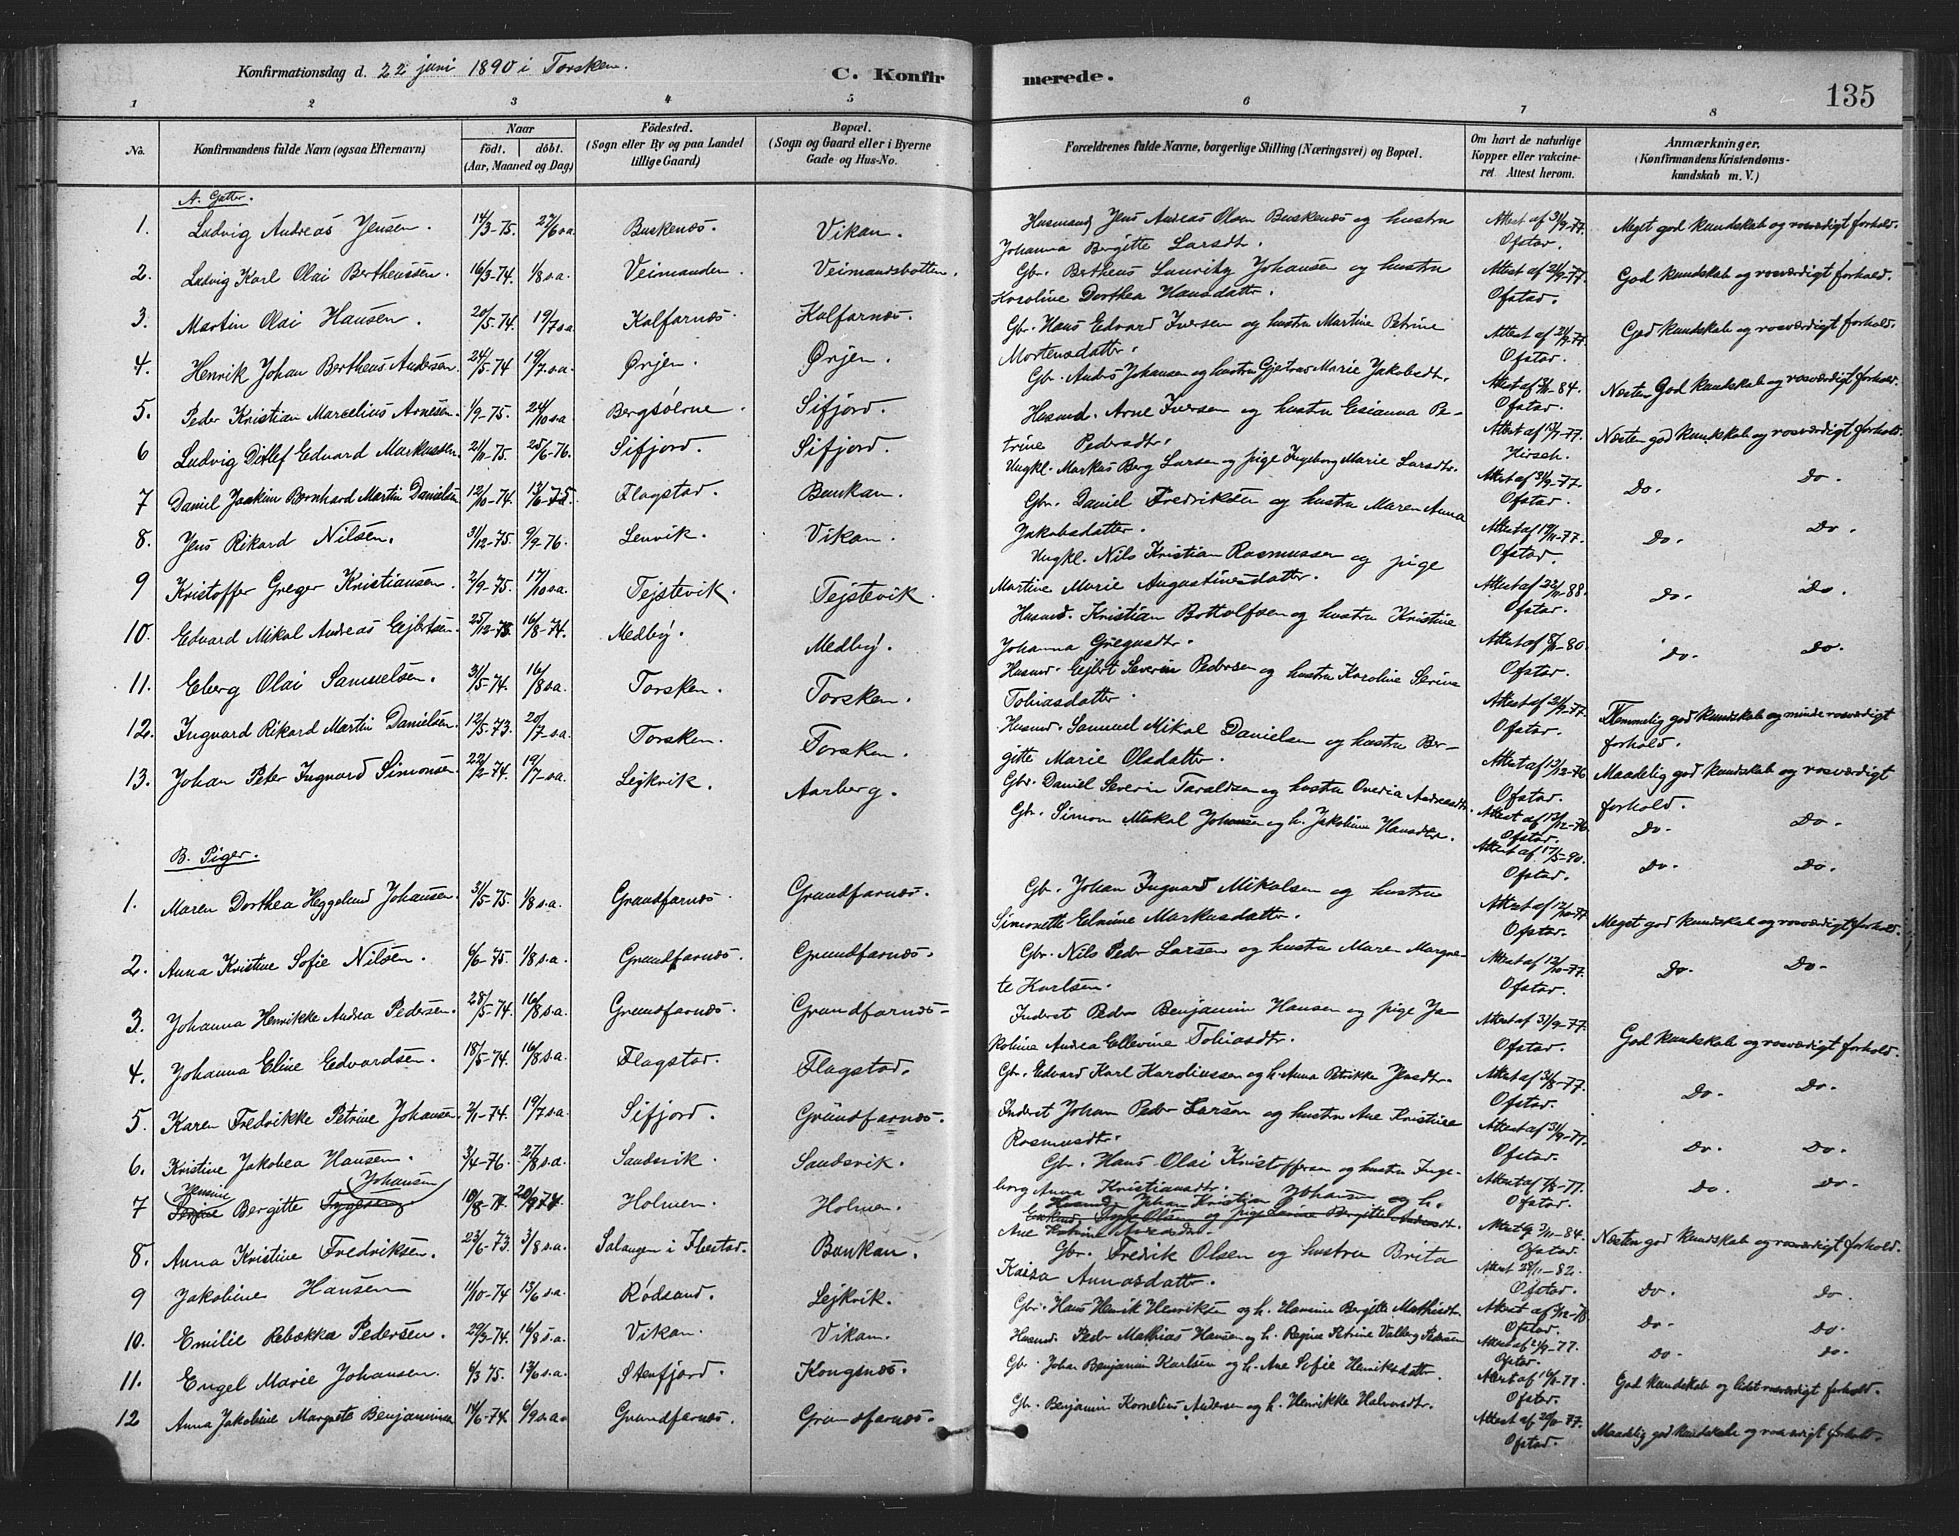 Konfirmationsdag d. 22 juni 1890 i Torsken.
C. Konfirmerede.
135
1 2 3 4 5 6 7 8
No.
Konfirmandens fulde Navn (ogsaa Efternavn)
Naar
født. døbt.
(Aar, Maaned og Dag)
Fødested.
(Sogn eller By og paa Landet
tillige Gaard)
Bopæl.
(Sogn og Gaard eller i Byerne
Gade og Hus-No.
Forældrenes fulde Navne, borgerlige Stilling (Næringsvei) og Bopæl.
Om havt de naturlige
Kopper eller vakcine-
ret. Attest herom.
Anmærkninger.
(Konfirmandens Kristendoms-
kundskab m. V.)
A. Gutter.
1. Ludvig Andreas Jensen. 14/3-75. 27/6 s.a. Buskenæs. Vikan. Husmand Jens Andreas Olsen Buskenæs og hustru Johanna Birgitte Larsdt. Attest af 31/9-77. Ofstad. Meget god kundskab og rosværdigt forhold.
2. Ludvig Karl Olai Bertheussen. 16/3-74. 1/8 s.a. Veimanden. Veimandsbotten. Gbr. Bertheus Lauritz Johansen og hustru Karoline Dorthea Hansdatter. Attest af 21/9-77. Ofstad. God kundskab og rosværdigt forhold.
3. Martin Olai Hansen. 20/5-74. 19/7 s.a. Kalfarnæs. Kalfarnæs. Gbr. Hans Edvard Iversen og hustru Martine Petrine Mortensdatter. Attest af 21/9-77. Ofstad. God kundskab og rosværdigt forhold.
4. Henrik Johan Bertheus Andersen. 24/5-74 19/7 s.a. Ørjen. Ørjen. Gbr. Anders Johansen og hustru Marie Jakobsdt. Attest af -84. Ofstad. Næsten God kundskab og rosværdigt forhold.
5. Peder Kristian Marcelius Arnesen. 1/9-75. 24/10 s.a. Bergsøerne. Sifjord. Husmd. Arne Iversen og hustru Petrine Pedersdt. Attest af -77. Hirsch. Næsten god kundskab og rosværdigt forhold.
6 Ludvig Ditlef Edvard Markussen. 21/11-75. 25/6-76. Sifjord. Sifjord. Ungkl. Markus Berg Larsen og pige Ingeborg Marie Larsdt. Attest af 31/9-77. Ofstad. Do. Do.
7 Daniel Joakim Bernhard Martin Danielsen 12/10-74. 13/6-75. Flagstad. Baukan. Gbr. Daniel Fredriksen og hustru Maren Anna Jakobsdatter. Attest af 19/11-77. Ofstad. Do. Do.
8. Jens Rikard Nilsen. 31/12-75. 9/9-76. Lenvik. Vikan. Ungkl. Nils Kristian Rasmussen og pige Martine Marie Augustinesdatter. Attest af 22/11-88. Ofstad. Do. Do.
9 Kristoffer Greger Kristiansen. 2/9-75. 17/10 s.a. Tejstevik. Tejstevik. Husmd. Kristian Bottolfsen og hustru Kristine Johanna Gregusdt. Attest af -80. Ofstad. Do. Do.
10. Edvard Mikal Andreas Ejlertsen. 25/12-73. 16/8-74. Medby. Medby. Husmd. Ejlert Severin Pedersen og hustru Karoline Serine Tobiasdatter. Attest af 21/9-77. Ofstad. Temmelig god kundskab og mindre rosværdigt forhold.
11. Eberg Olai Samuelsen. 31/5-74. 16/8 s.a. Torsken. Torsken. Husmd. Samuel Mikal Danielsen og hustru Bergitte Marie Olsdatter. Attest af 12/12-76 Ofstad. Maadelig god kundskab og rosværdigt forhold.
12. Ingvard Rikard Martin Danielsen. 12/5-73. 20/7 s.a. Torsken. Torsken. Gbr. Daniel Severin Taraldsen og hustru Overia Andreasdt. Attest af 12/12-76 Ofstad. Do. Do.
13. Johan Peter Ingvard Simonsen. 22/2-74. 19/7-s.a. Lejkvik. Aarberg. Gbr. Simon Mikal Johansen og h. Jakobine Hansdtr. Attest af 17/5-90. Ofstad. Do. Do.
B. Piger.
1. Maren Dorthea Heggelund Johansen. 31/5-75. 1/8 s.a. Grundfarnæs. Grundfarnæs. Gbr. Johan Ingvard Mikalsen og hustru Simonette Elmine Markusdatter. Attest af 12/10-77 Ofstad. Meget god kundskab og rosværdigt forhold.
2. Anna Kristine Sofie Nilsen. 6/6-75. 1/8 s.a. Grundfarnæs. Grundfarnæs. Gbr. Nils Peder Larsen og hustru Maren Margrete Karlsen. Attest af 12/10-77. Ofstad. Do. Do.
3. Johanna Henrikke Andrea Pedersen. 28/5-74. 16/8 s.a. Grundfarnæs. Grundfarnæs. Inderst Peder Benjamin Hansen og pige Jakobine Andrea Ellevine Tobiasdtr. Attest af 31/9-77. Ofstad. God kundskab og rosværdigt forhold.
4. Johanna Eline Edvardsen. 18/5-74. 16/8 s.a. Flagstad. Flagstad. Gbr. Edvard Karl Karoliussen og h. Anna Petrikke Jensdtr. Attest af 31/8-77. Ofstad. Do. Do.
5. Karen Fredrikke Petrine Johansen. 2/1-74. 19/7 s.a. Sifjord. Grundfarnæs. Inderst Johan Peder Larsen og hustru Ane Kristine Rasmusdtr. Attest af 31/9-77. Ofstad. Do. Do.
6. Kristine Jakobea Hansen. 3/4-76. 27/8 s.a. Sandsvik. Sandsvik. Gbr. Hans Olai Kristoffersen og hustru Ingeborg Anna Kristiansdtr. Attest af -77. Ofstad. Do. Do.
7 Jensine Bergitte Johansen 10/8-74. 20/9 74. Holmen. Holmen. Husmd. Johan Kristian Johansen og h. Ane Katrine Attest af 2/11-84. Ofstad. Næsten god kundskab og rosværdigt forhold.
8. Anna Kristine Fredriksen. 23/6-73. 3/8 s.a. Salangen i Ibestad. Baukan. Gbr. Fredrik Olsen og hustru Brita Kaisa Annasdatter. Attest 28/11-82. Ofstad. Do. Do.
9 Jakobine Hansen 11/10-74 13/6 s.a. Rødsand. Lejkvik. Gbr. Hans Henrik Henriksen og h. Hansine Bergitte Mathisdt. Attest af Ofstad. Do. Do.
10. Emilie Rebekka Pedersen. 29/3-74. 16/8 s.a. Vikan. Vikan. Husmd. Peder Mathias Hansen og h. Regine Petrine Valberg Pedersen Attest af 21/9-77. Ofstad. Do. Do.
11. Engel Marie Johansen. 6/3 75. 13/6 s.a. Stenfjord. Kongsnæs. Gbr. Johan Benjamin Karlsen og h. Ane Sofie Henriksdattr. Attest af -77. Ofstad. God kundskab og lidet rosværdigt forhold.
12 Anna Jakobine Margrete Benjaminsen 14/6-74. 6/9 s.a. Grundfarnæs. Grundfarnæs. Gbr. Benjamin Kornelius Andersen og h. Henrikke Halvorsdtr. Attest af -77. Ofstad. Maadelig god kundskab og rosværdigt forhold.